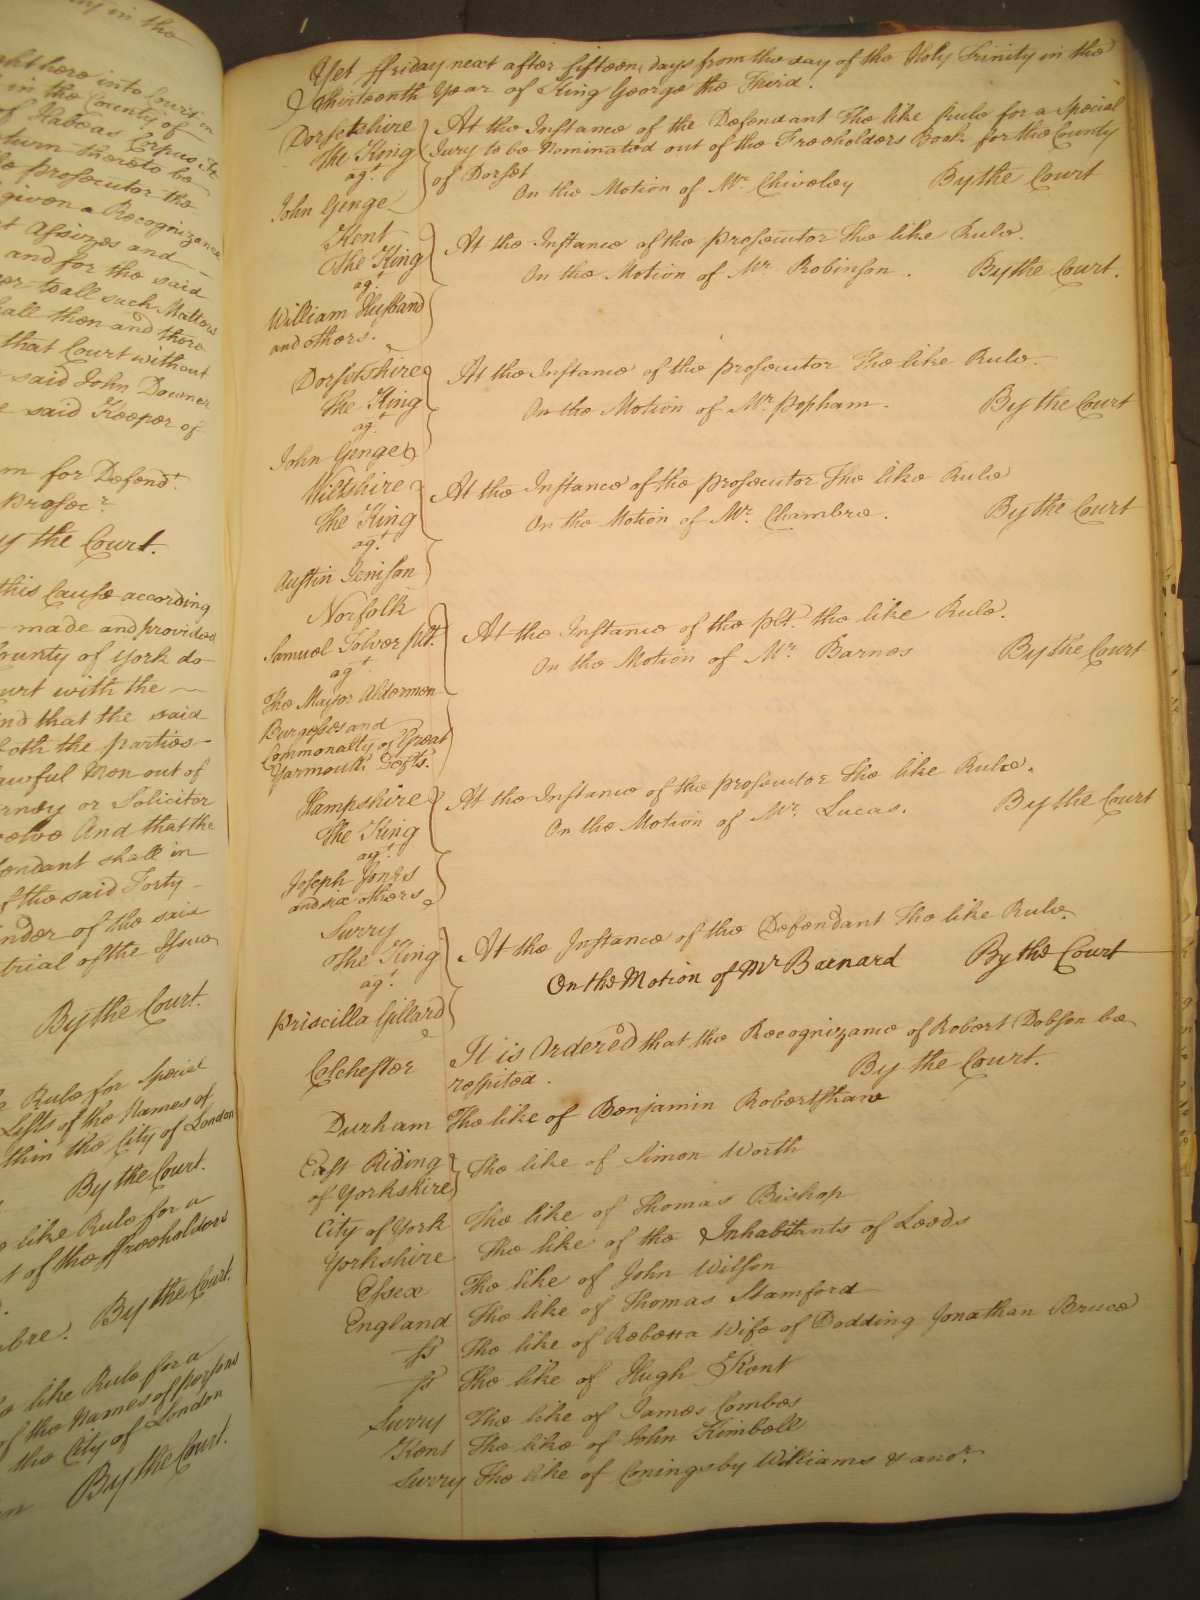 ny in the
ght here into Court in
in the County of
of Habeas Corpus &c
turn thereto be
he prosecutor the
given a Recognizance
t Assizes and
and for the said
er to all such Matters
all then and there
that Court without
said John Downer
e said Keeper of
m for Defend.t
Prosec.r
y the Court.
this Cause according
made and provided
County of York do
urt with the
nd that the said
both the parties
lawful Men out of
rney or Solicitor
welve And that the
endant shall in
f the said Forty
nder of the said
trial of the Issue
By the Court.
Rule for Special
Lists of the Names of
thin the City of London
By the Court.
like Rule for a
t of the ffreeholders
By the Court.
bre.
like Rule for a
of the Names of persons
the City of London
By the Court.
Yet ffriday next after fifteen days from the day of the Holy Trinity in the
thirteenth Year of King George the Third.
Dorsetshire At the Instance of the Defendant The like Rule for a Special
The King Jury to be Nominated out of the Freeholders Book for the County
ag.t of Dorset
John Genge On the Motion of Mr. Chiveley By the Court
Kent
The King At the Instance of the prosecutor The like Rule.
ag.t On the Motion of Mr. Robinson. By the Court.
William Husband
and others.
Dorsetshire At the Instance of the prosecutor The like Rule.
The King
ag.t On the Motion of Mr. Popham. By the Court
John Genge
Wiltshire At the Instance of the prosecutor The like Rule
The King On the Motion of Mr. Chambre. By the Court
ag.t
Austin Jenison
Norfolk
Samuel Tolver plt. At the Instance of the plt. the like Rule.
ag.t On the Motion of Mr. Barnes By the Court
The Mayor Aldermen
Burgesses and
Commonalty of Great
Yarmouth Defts.
Hampshire At the Instance of the prosecutor The like Rule.
The King On the Motion of Mr. Lucas. By the Court
ag.t
Joseph Jones
and six others
Surry
The King At the Instance of the Defendant The like Rule.
ag.t On the Motion of Mr Barnard By the Court
Priscilla Gillard
Colchester It is Ordered that the Recognizance of Robert Dobson be
respited. By the Court.
Durham The like of Benjamin Robertshaw
East Riding The like of Simon Worth
of Yorkshire
City of York The like of Thomas Bishop
Yorkshire The like of the Inhabitants of Leeds
Essex The like of John Wilson
England The like of Thomas Stamford
ss The like of Rebecca Wife of Dodding Jonathan Bruce
ss The like of Hugh Kent
Surry The like of James Combes
Kent The like of John Kimbell
Surry The like of Coningsby Williams & anor.